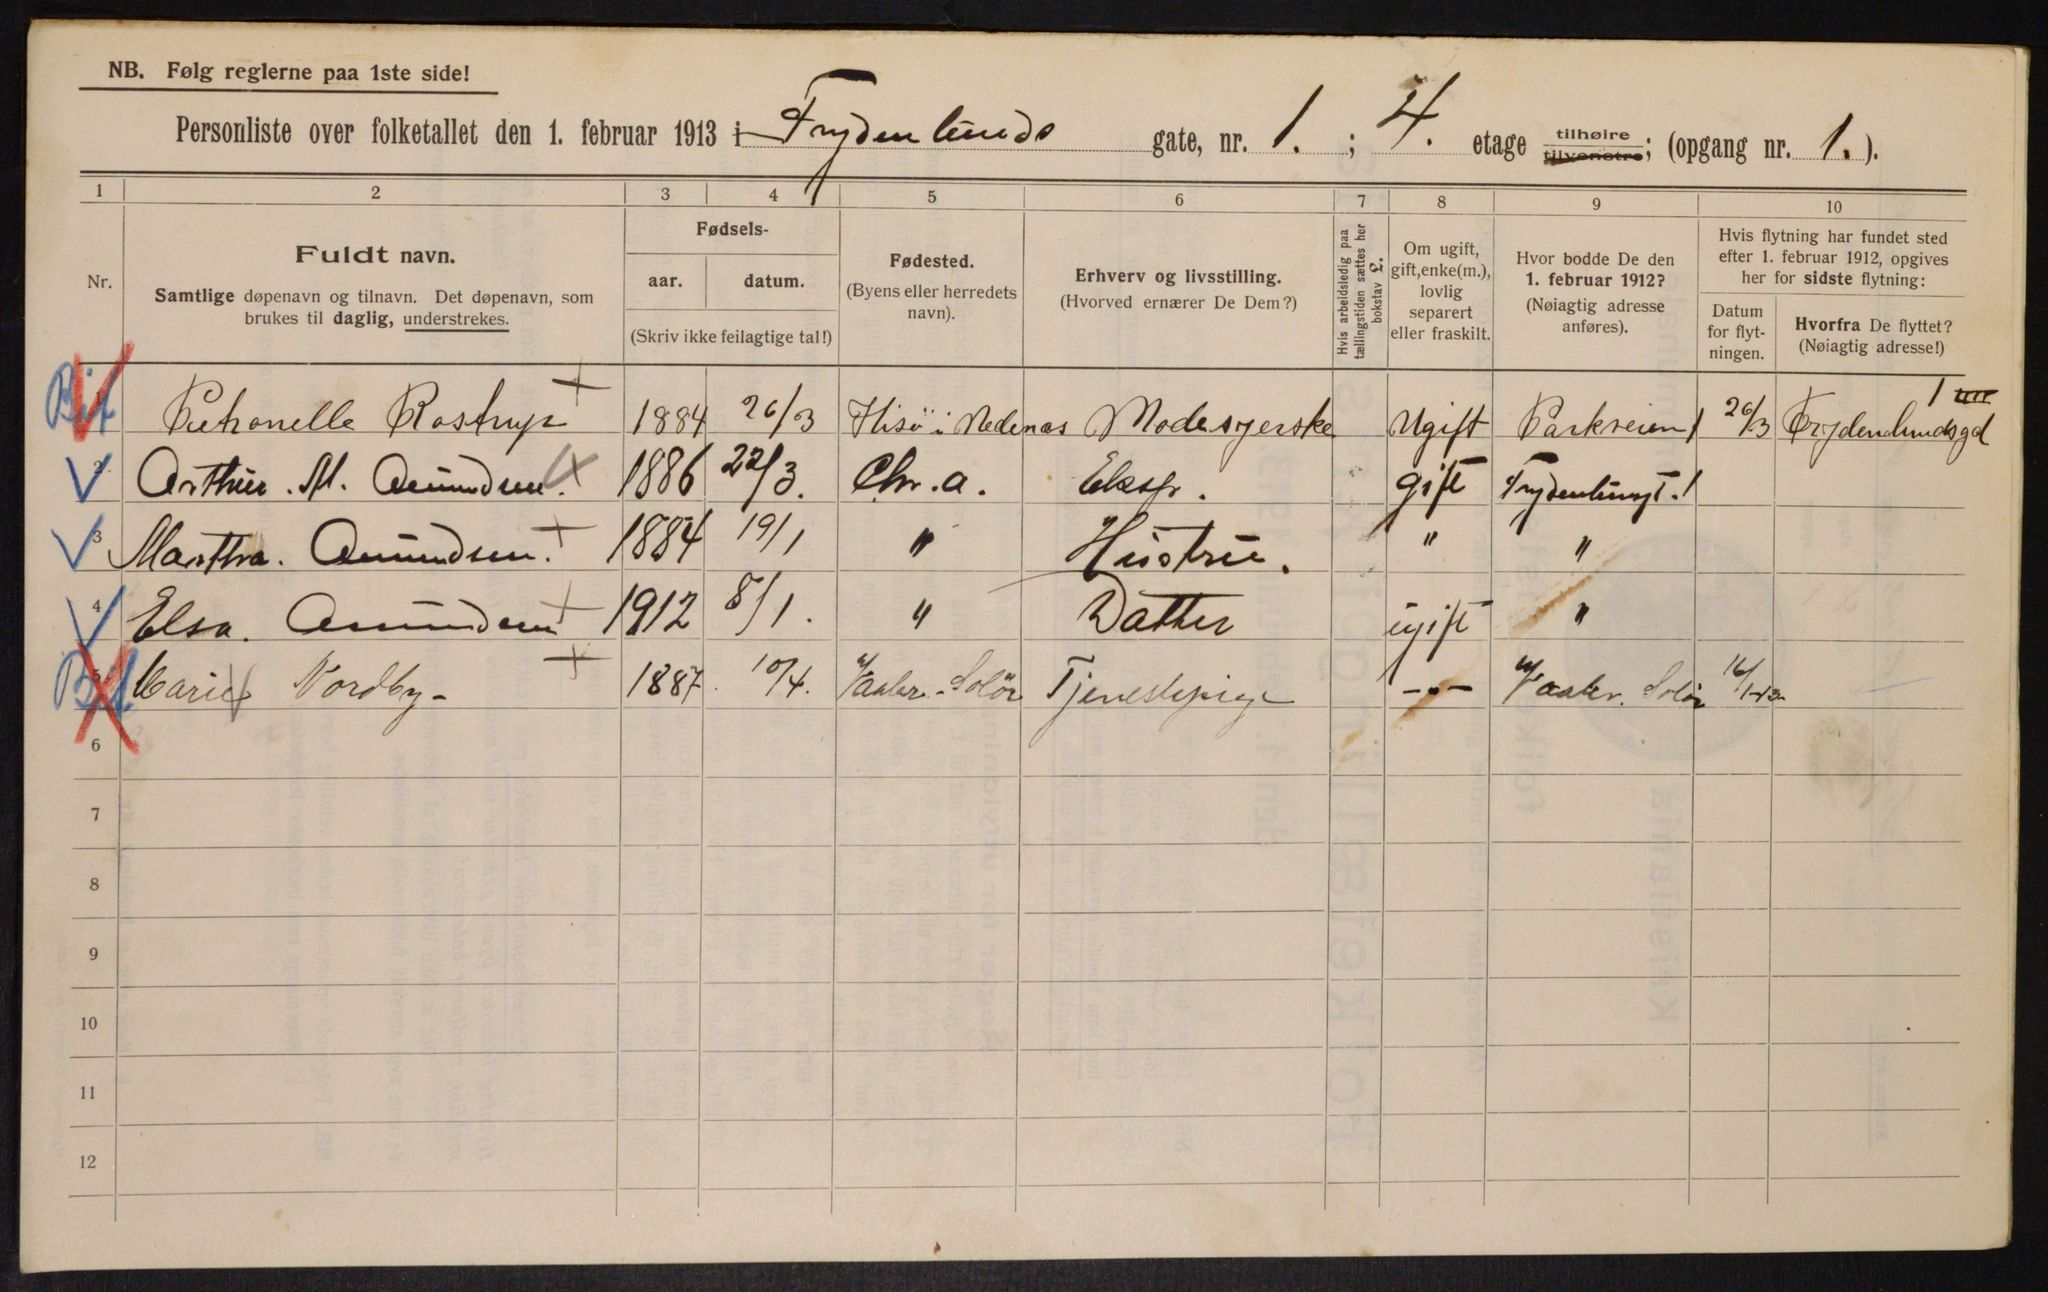 NB. Følg reglerne paa 1ste side!
Personliste over folketallet den 1. februar 1913 i Frydenlunds gate, nr. 1. ; 4. etage tilhøire tilvenstre; (opgang nr. 1. ).
1 2 3 4 5 6 7 8 9 10
Nr.
Fuldt navn.
Samtlige døpenavn og tilnavn. Det døpenavn, som
brukes til daglig, understrekes.
Fødsels-
aar. datum.
(Skriv ikke feilagtige tal!)
Fødested.
(Byens eller herredets
navn).
Erhverv og livsstilling.
(Hvorved ernærer De Dem?)
Hvis arbeidsledig paa
tællingstiden sættes her
bokstav L.
Om ugift,
gift, enke(m.),
lovlig
separert
eller fraskilt.
Hvor bodde De den
1. februar 1912?
(Nøiagtig adresse
anføres).
Hvis flytning har fundet sted
efter 1. februar 1912, opgives
her for sidste flytning:
Datum
for flyt-
ningen.
Hvorfra De flyttet?
(Nøiagtig adresse!)
Petronelle Rostrup 1884 26/3 Hisö i Nedenæs Modesyerske Ugift Parkveien 1 26/3 Frydenlundsgd 1
2 Arthur. M. Amundsen. 1886 22/3. Chr. a. Eksp. gift Frydenlunsgt. 1
3 Martha. Amundsen. 1884 19/1 " Hustru. " "
4 Elsa. Amundsen 1912 8/1. " Datter ugift "
Marie Nordby - 1887. 10/4. Vaaler - Solör Tjenestepige -"- Vaaler. Solör
6
7
8
9
10
11
12